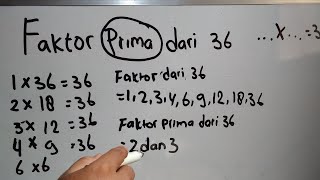 Faktor Prima dari 36
...x...=3
1 x 36 = 36
2 x 18 = 36
3 x 12 = 36
4 x 9 = 36
6 x 6
Faktor dari 36
=1,2,3,4,6,9,12,18,36
Faktor prima dari 36
=2 dan 3